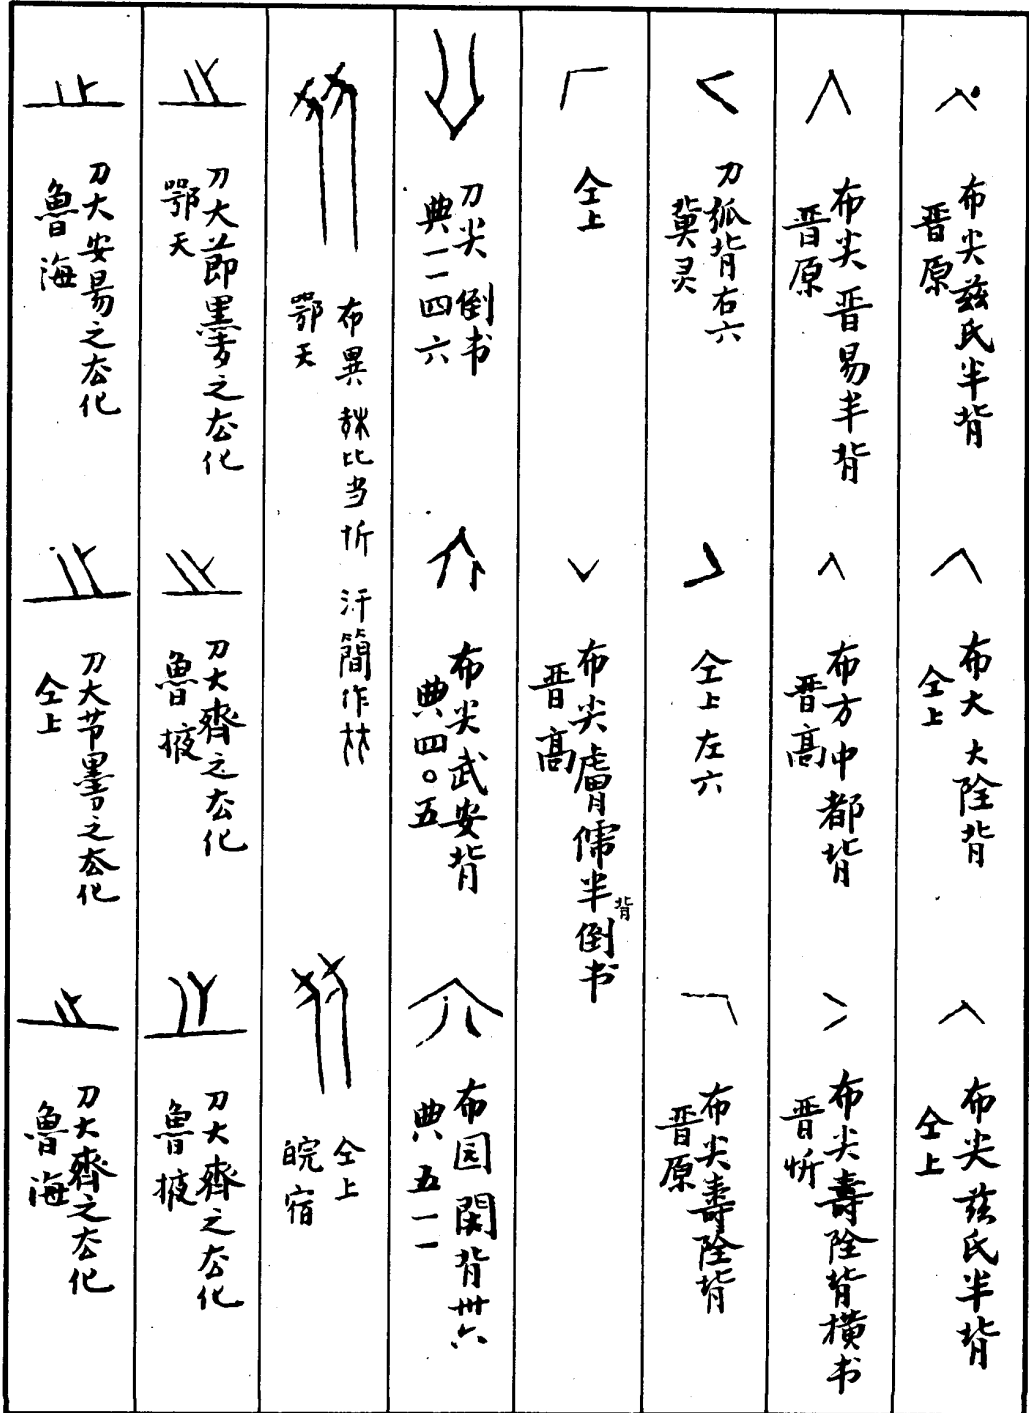 布尖兹氏半背
晋原
布大 大陰背
仝上
布尖兹氏半背
仝上
布尖晋易半背
晋原
布方中都背
晋高
布尖壽陰背横书
晋忻
刀弧背右六
冀灵
仝上左六
布尖壽陰背
晋原
仝上
布尖膚俿半背倒书
晋高
刀尖倒书
典一一四六
布尖武安背
典四〇五
布园閺背卅六
典五一一
布異 桒比当忻 汗簡作𣏟
鄂天
仝上
皖宿
刀大節墨之厺化
鄂天
刀大齊之厺化
魯掖
刀大齊之厺化
魯掖
刀大安昜之厺化
魯海
刀大节墨之厺化
仝上
刀大齊之厺化
魯海